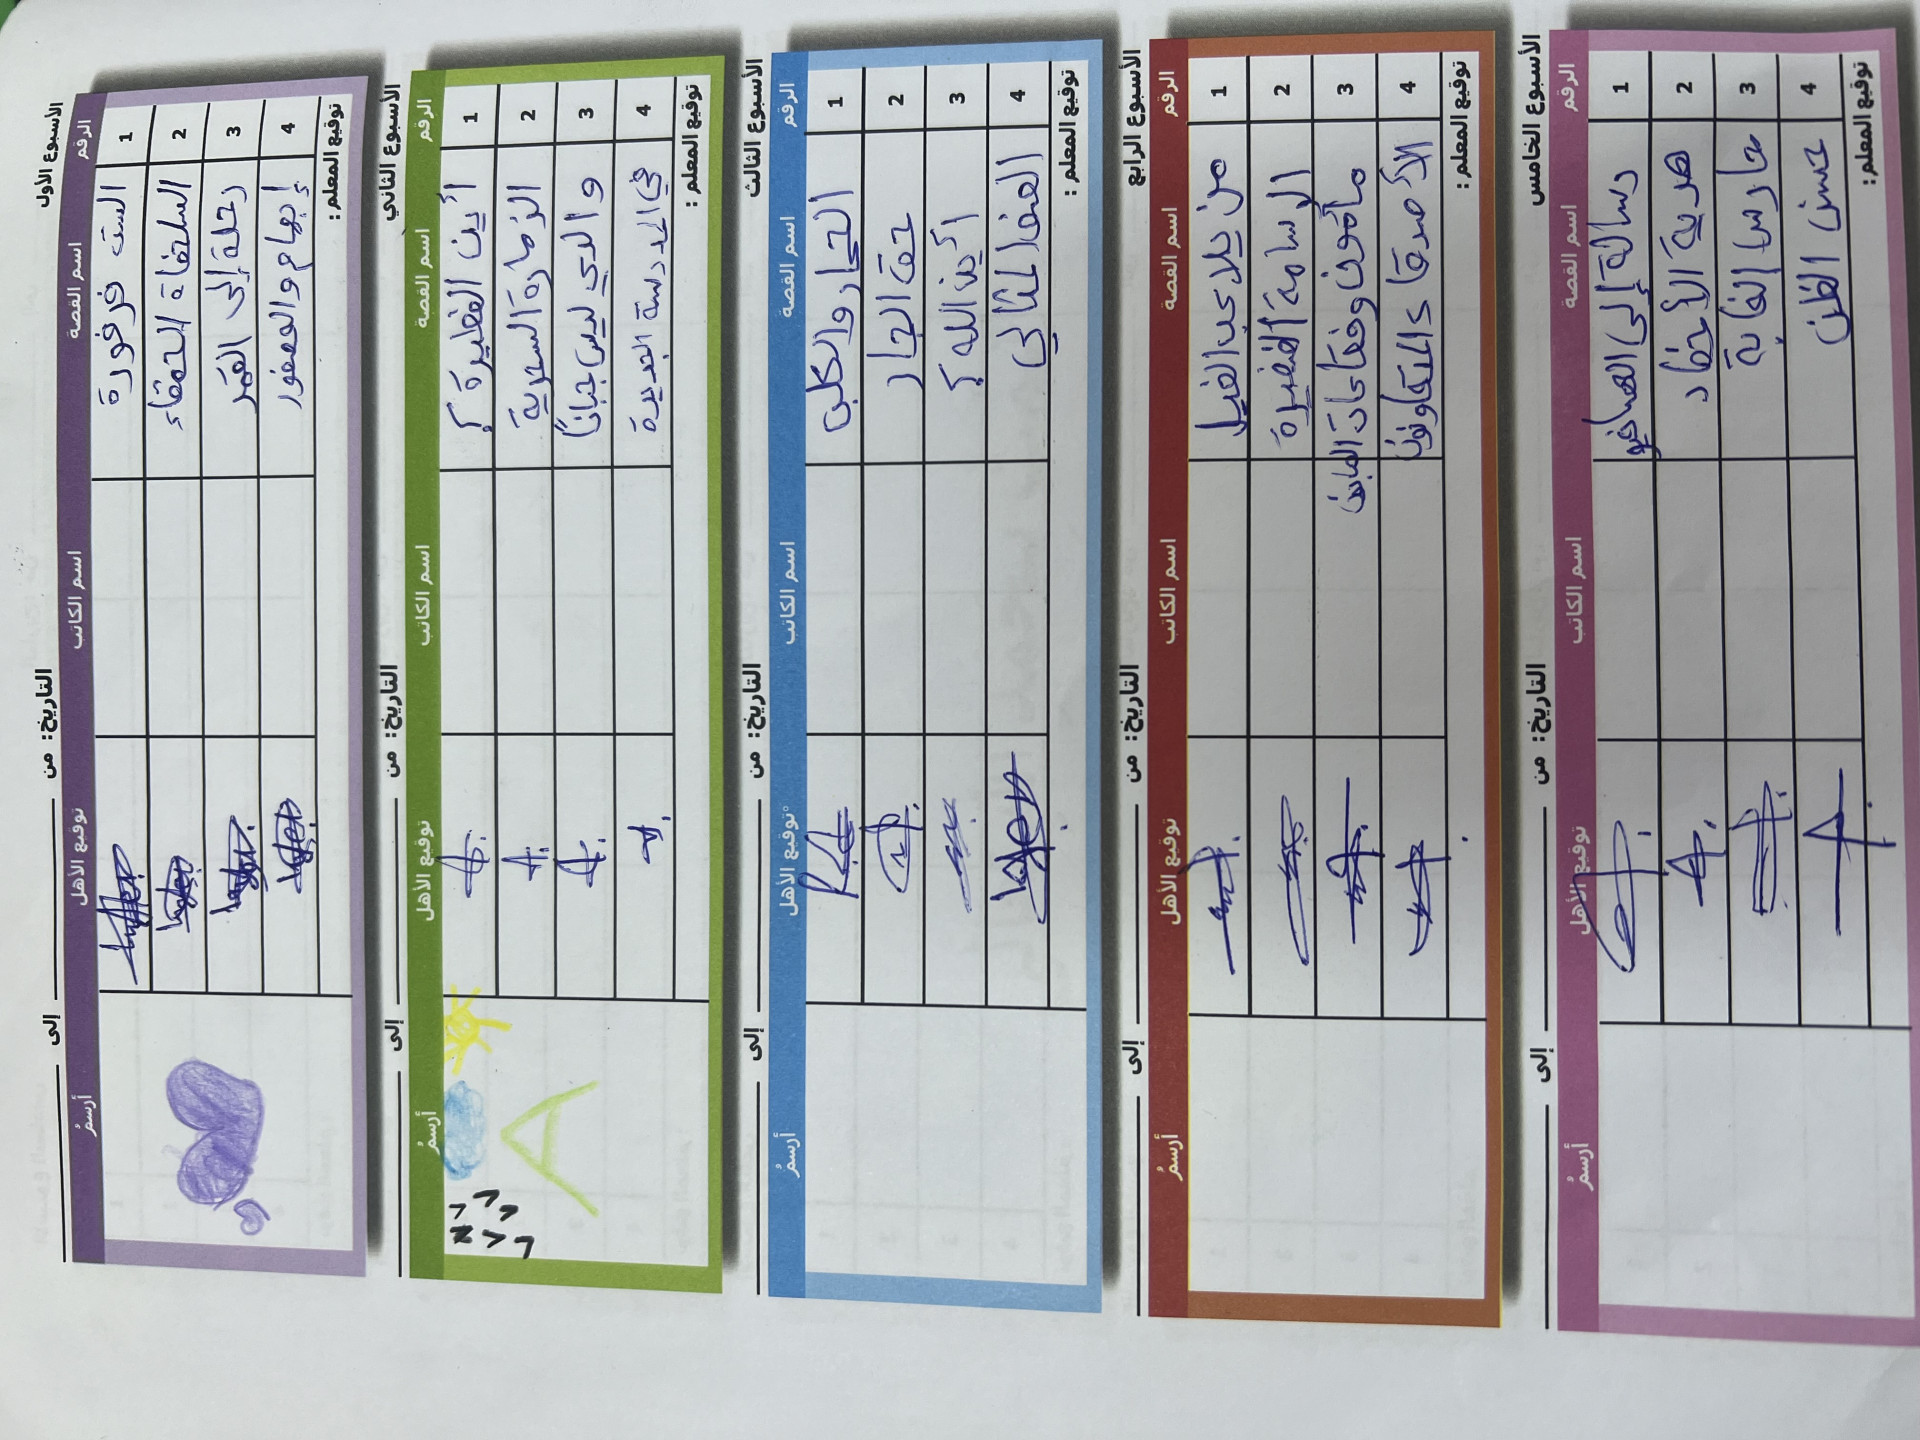 الأسبوع الأول
التاريخ: من ــــــ إلى ــــــ
الرقم اسم القصة اسم الكاتب توقيع الأهل أرسمُ
1 الست فرفورة
2 السلحفاة الحمقاء
3 رحلة إلى القمر
4 إبهام والعصفور
توقيع المعلم :
الأسبوع الثاني
التاريخ: من ــــــ إلى ــــــ
الرقم اسم القصة اسم الكاتب توقيع الأهل أرسمُ
1 أين الفطيرة ؟
2 الزمارة السحرية
3 والدي ليس جباناً
4 في المدرسة الجديدة
توقيع المعلم :
الأسبوع الثالث
التاريخ: من ــــــ إلى ــــــ
الرقم اسم القصة اسم الكاتب توقيع الأهل أرسمُ
1 الحمار والكلب
2 حق الجار
3 أين الله ؟
4 العقد المثالي
توقيع المعلم :
الأسبوع الرابع
التاريخ: من ــــــ إلى ــــــ
الرقم اسم القصة اسم الكاتب توقيع الأهل أرسمُ
1 من يلاعب الفيل
2 الرسامة الصغيرة
3 مأمون وفقاعات الصابون
4 الأصدقاء المتعاونون
توقيع المعلم :
الأسبوع الخامس
التاريخ: من ــــــ إلى ــــــ
الرقم اسم القصة اسم الكاتب توقيع الأهل أرسمُ
1 رسالة إلى العصافير
2 هدية الأحفاد
3 حارس الغابة
4 حسن الظن
توقيع المعلم :